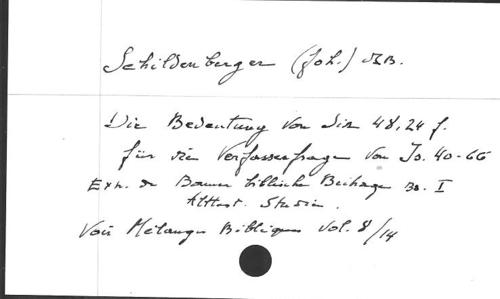 Schildenberger (Joh.) OSB.
Die Bedeutung von Sir 48,24 f.
für die Verfasserfrage von Is. 40-66
Extr. de Bonner biblische Beiträge Bd. I
Alttest. Studien
Voir Mélanges Bibliques vol. 8/14